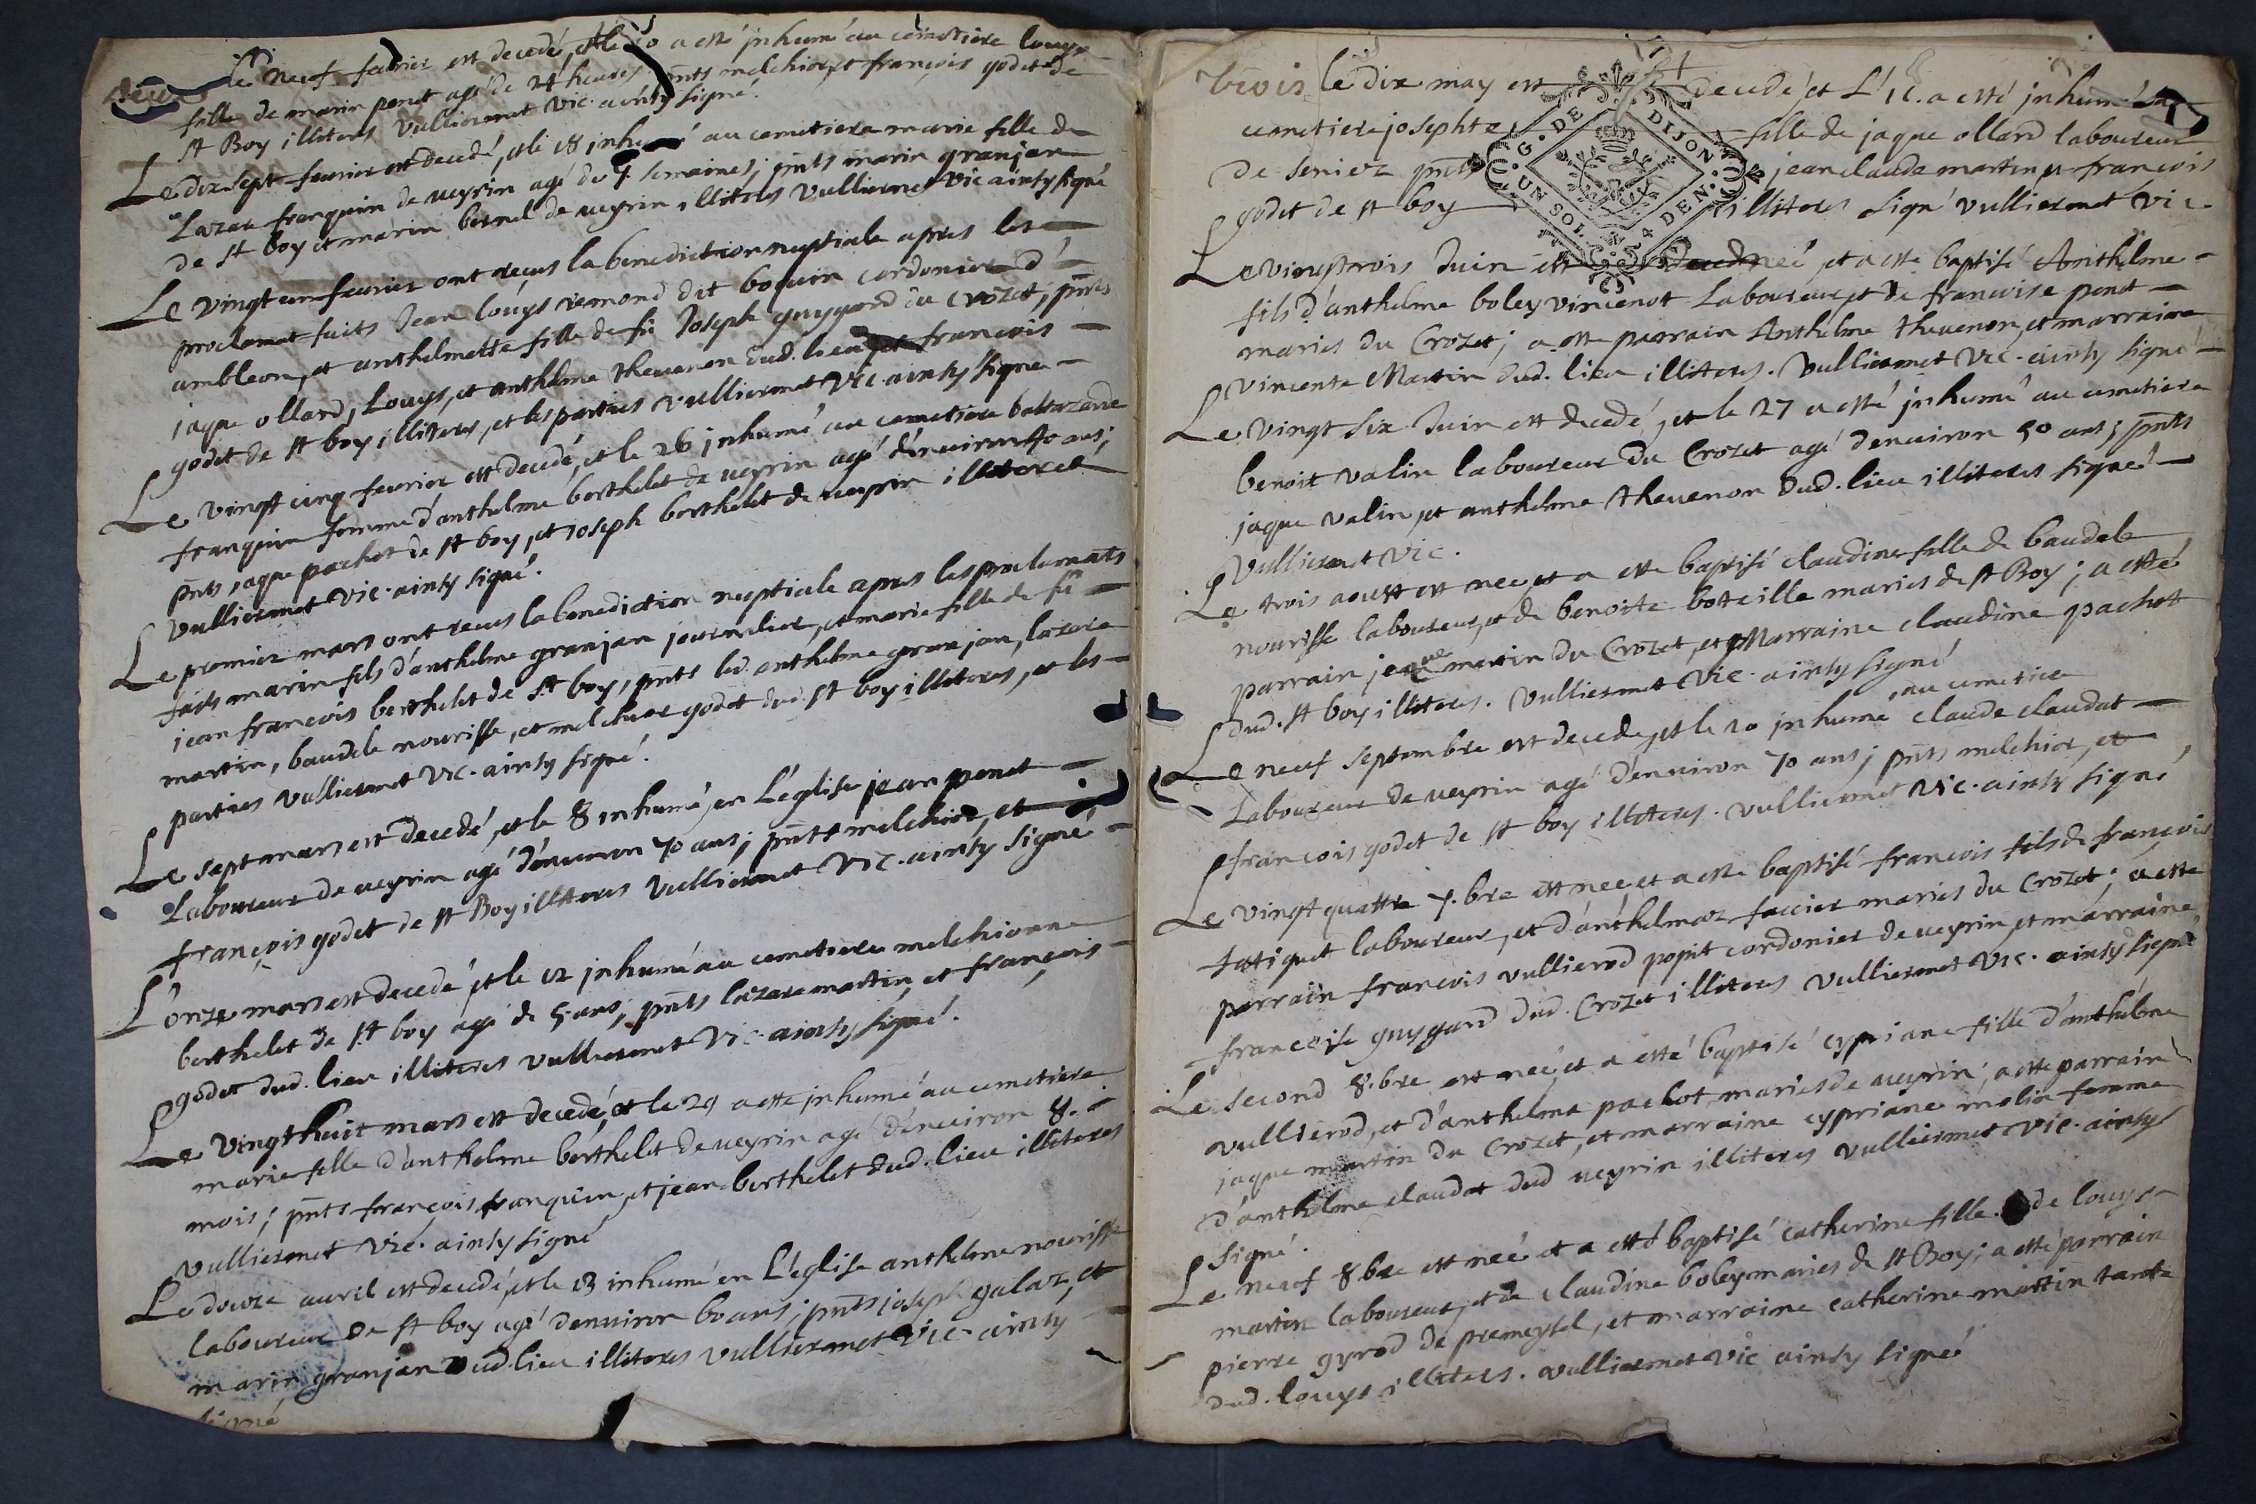 deux le neuf febvrier est decedé, et le 10 a esté inhumé au cimetiere louyse
fille de marin penet agé de 24 heures pnts melchior, et francois godet de
st Boy illiteres vulliermet vic. ainsy signé.
Le dix sept fevrier est decedé, et le 18 inhumé au cemetiere marie fille de
Lazare franquin de veyrin agé de 7 semaines; pnts marin granjan
de st boy et marin bernel de veyrin illiteres vulliermet vic ainsy signé
Le vingt un fevrier ont recus la benediction nuptiale apres les
proclamat faits Jean louys remond dit boquin cordonier d'
ambleon, et anthelmette fille de fû Joseph guygard du crozet; pnts
jaque ollard, Louys, et anthelme thevenon dud. lieu francois
godet de st boy illiteres, et les parties vulliermet vic. ainsy signé
Le vingt cinq fevrier est decedé, et le 26 inhumé au cemetiere baltazarde
franquin femme d'anthelme berthelet de veyrin agé d'environ 40 ans;
pnts jaque pachot de st boy, et joseph berthelet de veyrin illiteres
vulliermet vic. ainsy signé.
Le premier mars ont recus la benediction nuptiale apres les proclamats
faits marin fils d'anthelme granjan journalier, et marie fille de fû
jean francois berthelet de st boy, pnts led. anthelme granjan, lazare
martin, baudele nourisse, et melchior godet dud. st boy illiteres, et les
parties vulliermet vic. ainsy signé.
Le sept mars est decedé, et le 8 inhumé en L'église jean penet
Laboureur de veyrin agé d'environ 70 ans; pnts melchior, et
françois godet de st Boy illiteres vulliermet vic. ainsy signé
L'onze mars est decedé, et le 12 inhumé au cemetiere melchionne
berthelet de st boy agé de 5 ans; pnts lazare martin, et françois
godet dud. lieu illiteres vulliermet vic. ainsy signé.
Le vingthuit mars est decedé, et le 29 a esté inhumé au cemetiere
marie fille d'anthelme berthelet de veyrin agé d'environ 8.
mois; pnts françois franquin, et jean berthelet dud. lieu illiteres
vulliermet vic. ainsy signé
Le douze avril est decedé, et le 13 inhumé en L'eglise anthelme nourisse
laboureur de st boy agé denviron 60 ans; pnts joseph galaz, et
marin granjan dud. lieu illiteres vulliermet vic. ainsy
signé
trois le dix may est decedé, et L'11. a esté inhumé au
cemetiere josephte fille de jaque ollard laboureur
de seniez pnts jean claude martin et francois
godet de st boy illiteres signé vulliermet vic.
G. DE DIJON
UN SOL 4 DEN.
Le vingt trois Juin est neé, et a esté baptisé Anthelme
fils d'anthelme boley vincenot Laboureur, et de francoise penet
mariés du Crozet; a esté parrain Anthelme thevenon, et marraine
vincente Martin dud. lieu illiteres. vulliermet vic. ainsy signé
Le vingt six Juin est decedé, et le 27 a esté inhumé au cemetiere
benoit valin laboureur du Crozet agé denviron 50 ans; pnts
jaque valin, et anthelme thevenon dud. lieu illiteres signé
Vulliermet vic.
Le trois aoust est neé, et a esté baptisé claudine fille de baudele
nourisse laboureur, et de benoite boteille mariés de st Boy; a esté
parrain martin du Crozet, et Marraine claudine pachot
dud. st boy illiteres. vulliermet vic. ainsy signé
Le neuf septembre est decedé, et le 10 inhumé au cemetiere claude claudat
Laboureur de veyrin agé d'environ 70 ans; pnts melchior, et
francois godet de st boy illiteres. vulliermet vic. ainsy signé
Le vingt quattre 7.bre est neé, et a esté baptisé francois fils de françois
tatiquet laboureur, et d'anthelmaz faccier mariés du Crozet; a esté
parrain francois vullierod popit cordonier de veyrin, et marraine
francoise guygard dud. Crozet illiteres vulliermet vic. ainsy signé
Le second 8.bre est neé, et a esté baptisé cypriane fille d'anthelme
vullierod, et d'anthelma pachot mariés de veyrin; a esté parrain
jaque martin du Crozet, et marraine cypriane molin femme
d'anthelme claudat dud veyrin illiteres vulliermet vic. ainsy
signé.
Le neuf 8.bre est neé et a esté baptisé catherine fille de louys
martin laboureur, et de claudine boley mariés de st Boy; a esté parrain
pierre gyrod de premeysel, et marraine catherine martin tante
dud. louys illiteres. vulliermet vic ainsy signé